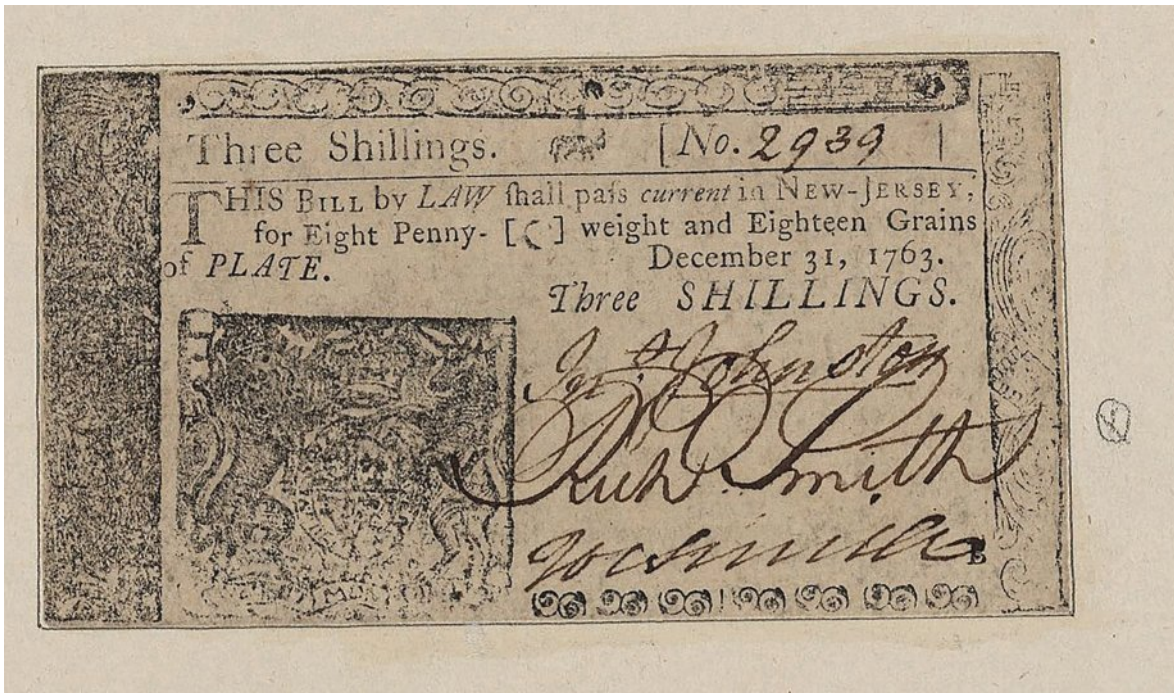 Three Shillings. [No. 2939]
THIS BILL by LAW ſhall paſs current in NEW-JERSEY,
for Eight Penny- [ ] weight and Eighteen Grains
of PLATE. December 31, 1763.
Three SHILLINGS.
Jn. Johnston
Richd. Smith
Jos Smith
B